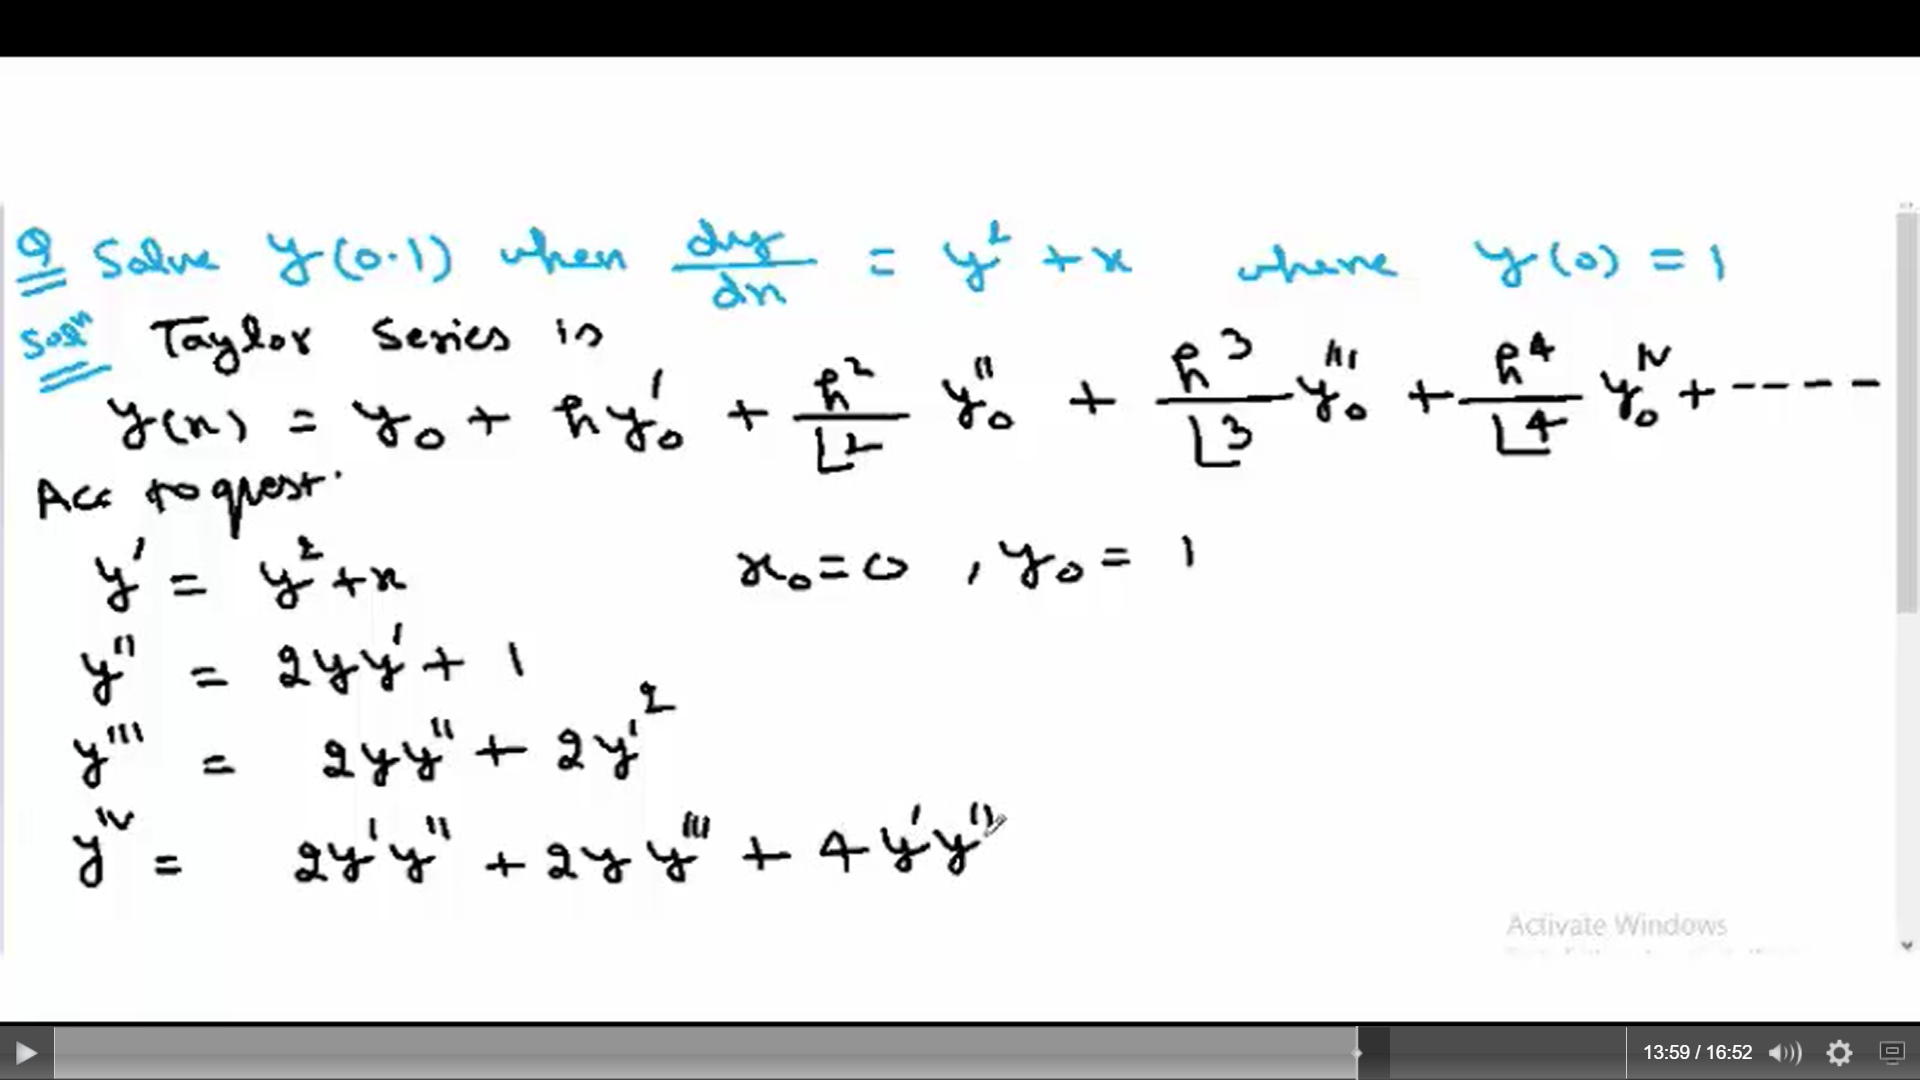 Q Solve y(0.1) when dy/dx = y² + x where y(0) = 1
Solⁿ Taylor Series is
y(x) = y₀ + hy₀' + h²/⌊2 y₀'' + h³/⌊3 y₀''' + h⁴/⌊4 y₀ⁱᵛ + -----
Acc to quest.
y' = y² + x x₀ = 0 , y₀ = 1
y'' = 2yy' + 1
y''' = 2yy'' + 2y'²
yⁱᵛ = 2y'y'' + 2yy''' + 4y'y''
Activate Windows
13:59 / 16:52